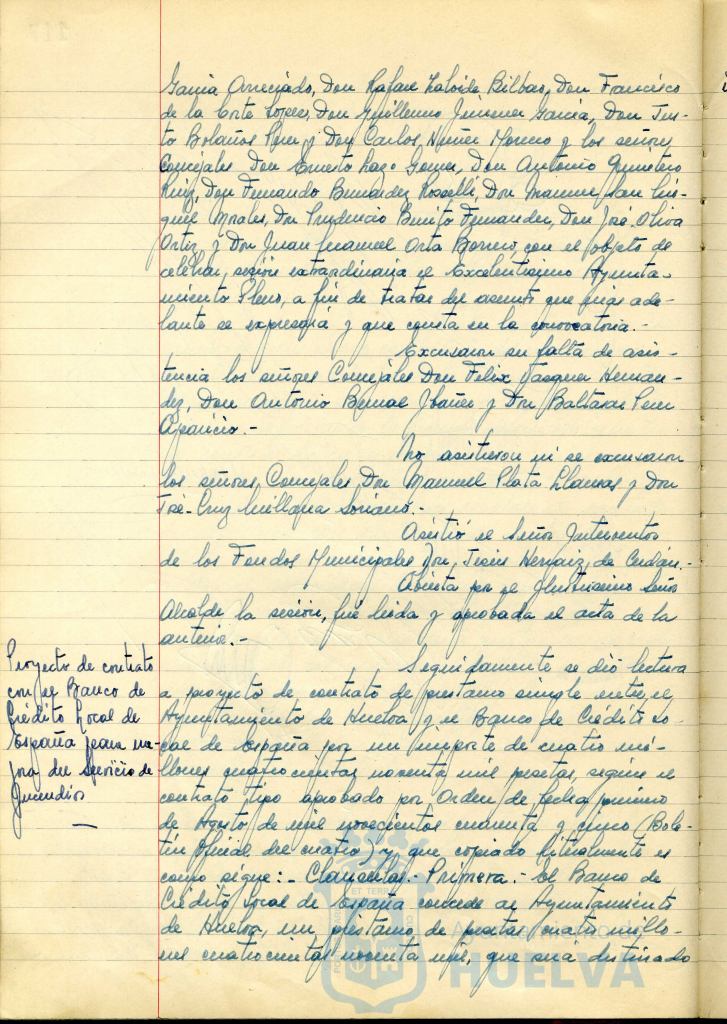 García Arreciado, Don Rafael Bilbao, Don Francisco
de la Corte López, Don Guillermo Jimenez García, Don Jus-
to Bolaños Perez y Don Carlos Nuñez Moreno y los señores
Concejales Don Ernesto Lazo Gomez, Don Antonio Quintero
Ruiz, Don Fernando Bermudez Rosselli, Don Manuel San Mi-
guel Morales, Don Prudencio Benito Fernandez, Don José Oliva
Ortiz y Don Juan Manuel Orta Borrero, con el objeto de
celebrar sesión extraordinaria el Excelentísimo Ayunta-
miento Pleno, a fin de tratar del asunto que más ade-
lante se expresará y que consta en la convocatoria.-
Excusaron su falta de asis-
tencia los señores Concejales Don Felix Vazquez Hernan-
dez, Don Antonio Bernal Ibañez y Don Baltasar Perez
Aparicio.-
No asistieron ni se excusaron
los señores Concejales Don Manuel Plata Llanas y Don
José-Cruz Soriano.-
Asistió el Señor Interventor
de los Fondos Municipales Don de Cerdán.-
Abierta por el Ilustrísimo Señor
Alcalde la sesión, fue leida y aprobada el acta de la
anterior.-
Proyecto de contrato
con el Banco de
Crédito Local de
España para me-
jora del Servicio de
Incendios
Seguidamente se dió lectura
a proyecto de contrato de prestamo simple entre el
Ayuntamiento de Huelva y el Banco de Crédito Lo-
cal de España por un importe de cuatro mi-
llones cuatrocientas noventa mil pesetas, según el
contrato tipo aprobado por Orden de fecha primero
de Agosto de mil novecientos cuarenta y cinco (Bole-
tin Oficial del cuatro) y que copiado literalmente es
como sigue:- Clausulas.- Primera.- El Banco de
Crédito Local de España concede al Ayuntamiento
de Huelva, un préstamo de pesetas cuatro millo-
nes cuatrocientas noventa mil, que será destinado
Ayuntamiento de
HUELVA